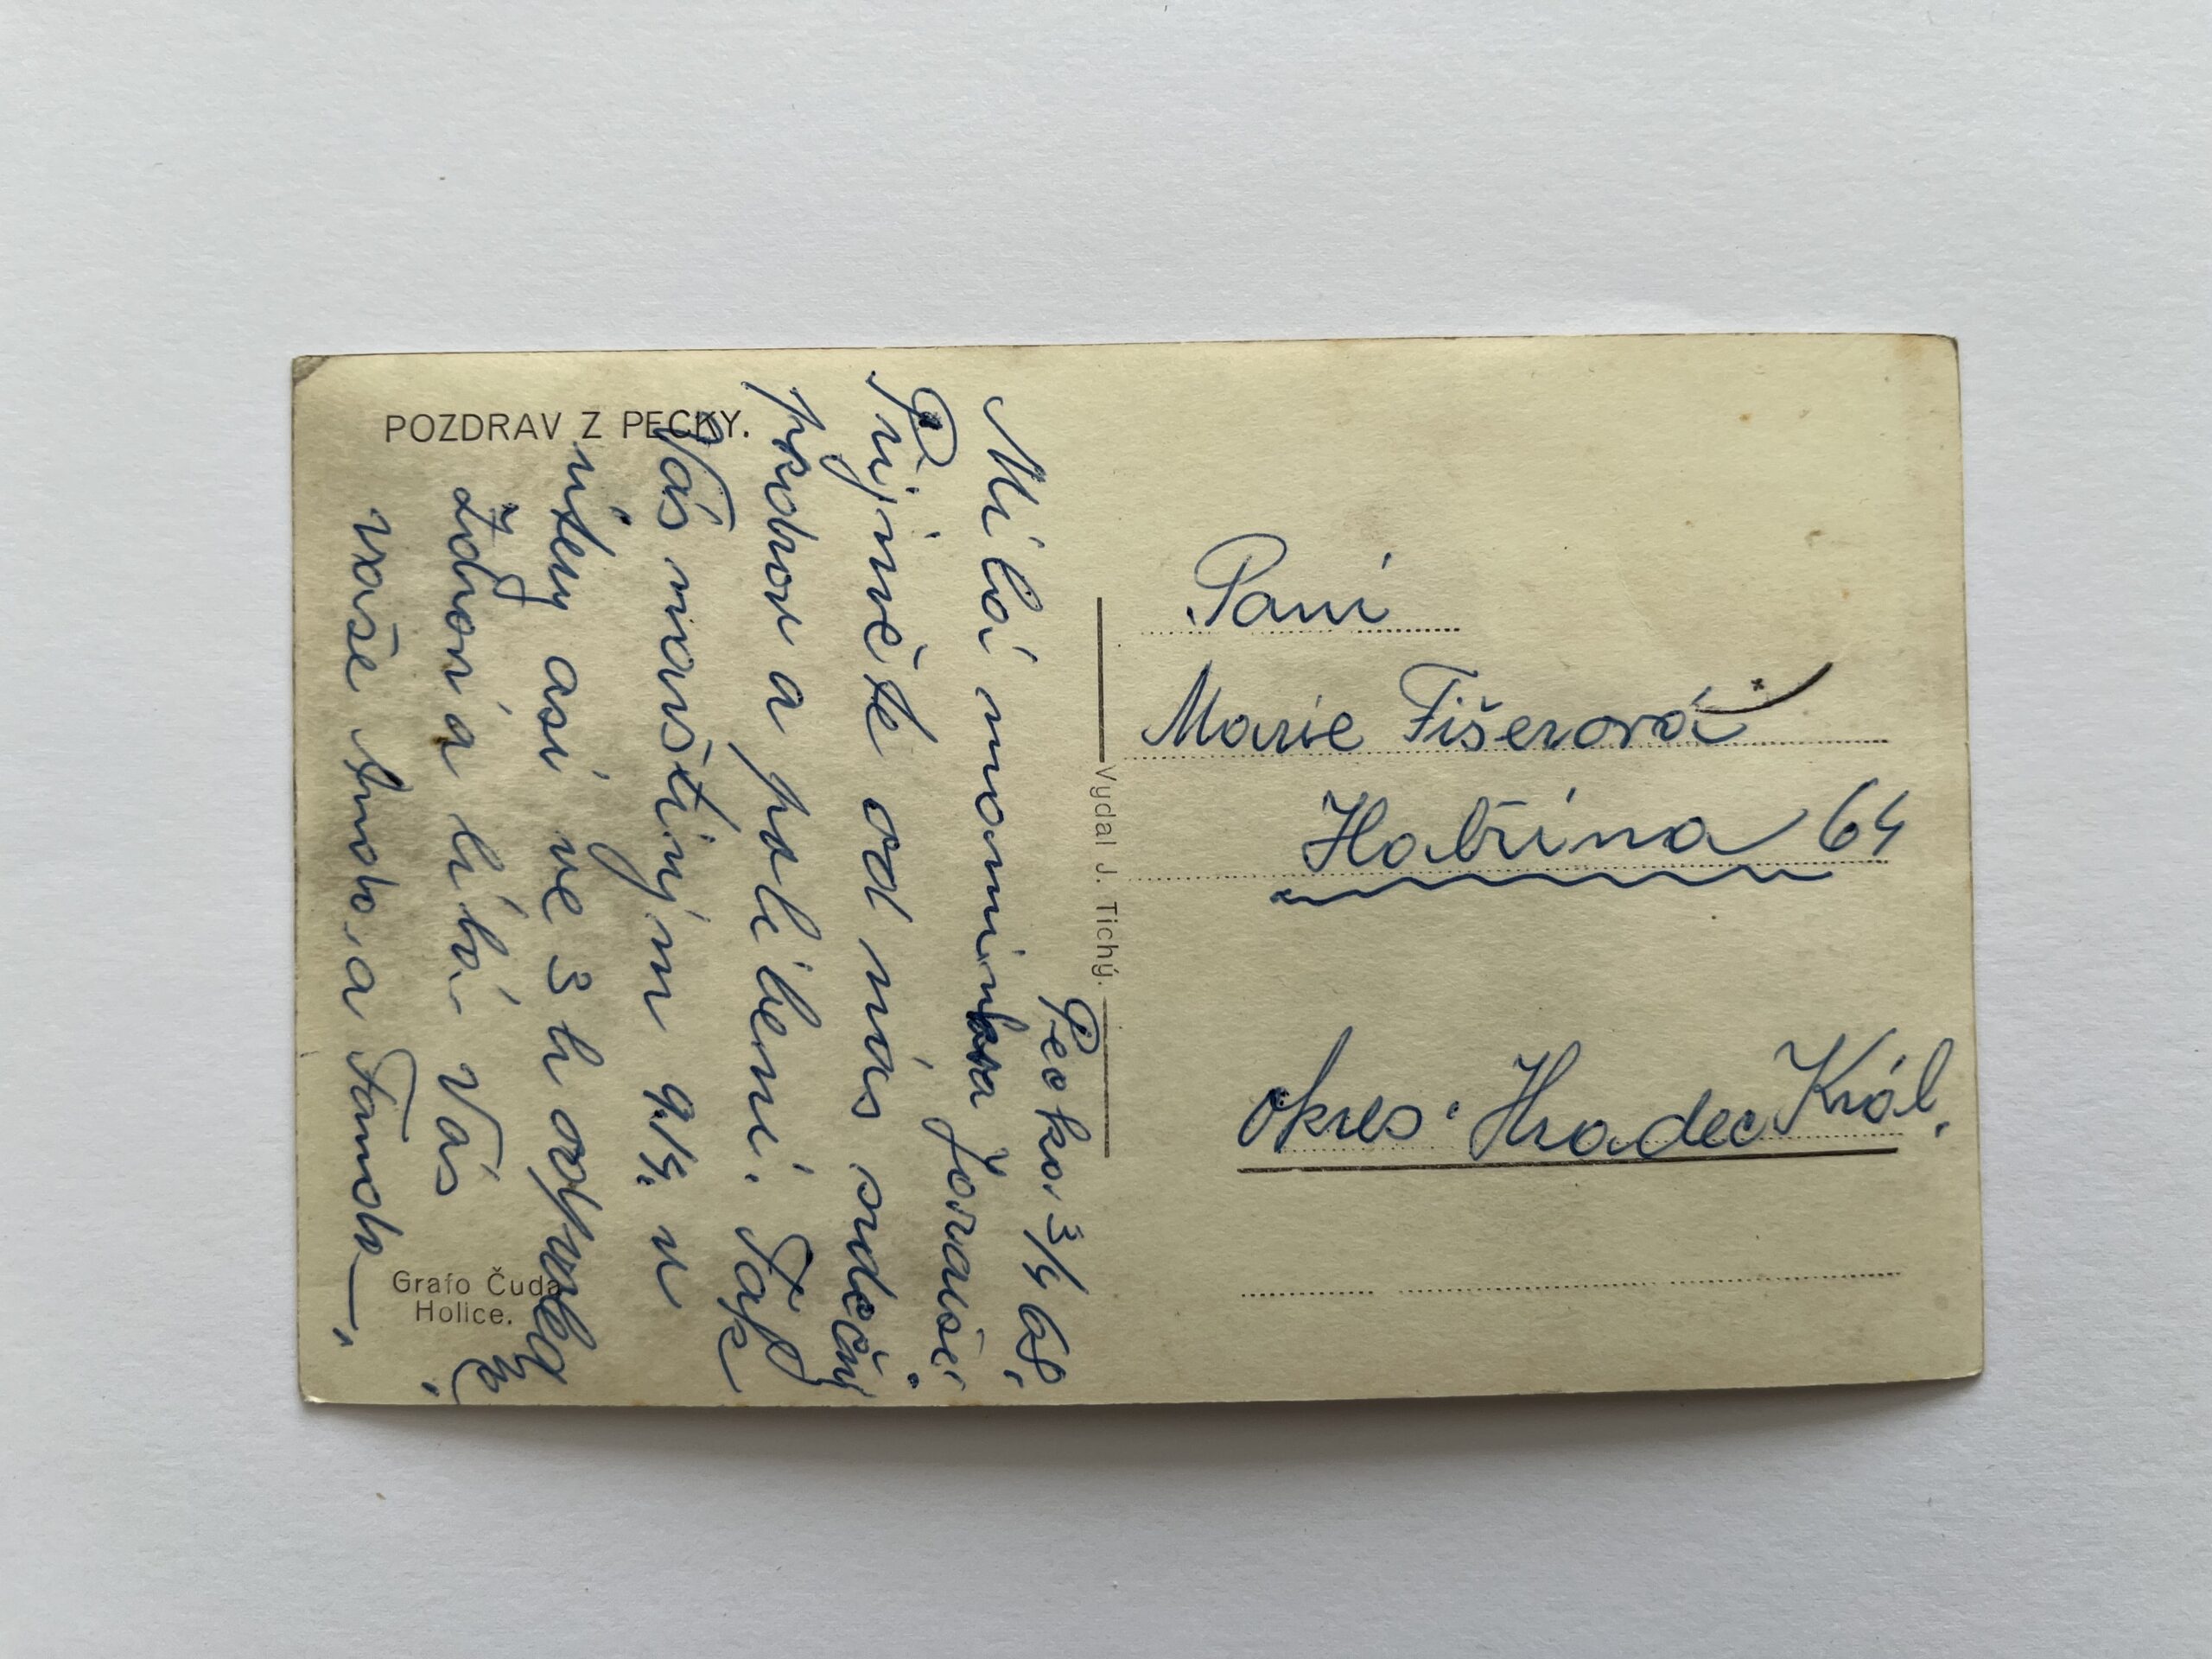 POZDRAV Z PECKY.
Pecka 3/4 68.
Milá maminko a
Přijměte od nás srdečný
pozdrav a políbení. Tak
Vás navštívým 9/4. v
úterý asi ve 3 h odpoled
Zdraví a líbá Vás
vaše a
Grafo Čuda
Holice.
Vydal J. Tichý.
Paní
Marie Fišerová
Habřina 64
okres. Hradec Král.